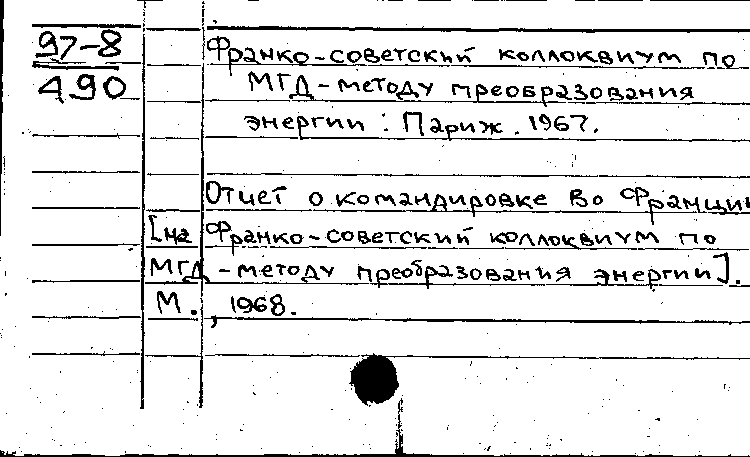 97-8
490
Франко-советский коллоквиум по
МГД-методу преобразования
энергии: Париж. 1967.
Отчет о командировке во Франции
[на Франко-советский коллоквиум по
МГД-методу преобразования энергии].
М., 1968.